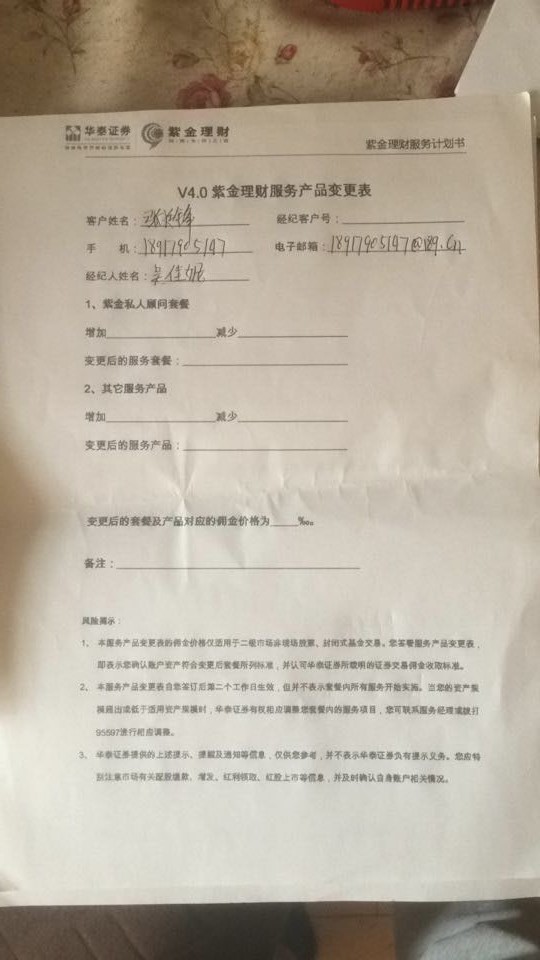 华泰证券 紫金理财 紫金理财服务计划书
V4.0 紫金理财服务产品变更表
客户姓名： 经纪客户号：
手 机：18917905147 电子邮箱：18917905147@189.cn
经纪人姓名：吴佳妮
1、紫金私人顾问套餐
增加 减少
变更后的服务套餐：
2、其它服务产品
增加 减少
变更后的服务产品：
变更后的套餐及产品对应的佣金价格为 ‰。
备注：
风险揭示：
1、 本服务产品变更表的佣金价格仅适用于二级市场非现场股票、封闭式基金交易。您签署服务产品变更表，
即表示您确认账户资产符合变更后套餐所列标准，并认可华泰证券所载明的证券交易佣金收取标准。
2、 本服务产品变更表自您签订后第二个工作日生效，但并不表示套餐内所有服务开始实施。当您的资产规
模超出或低于适用资产规模时，华泰证券有权相应调整您套餐内的服务项目，您可联系服务经理或拨打
95597进行相应调整。
3、 华泰证券提供的上述提示、提醒及通知等信息，仅供您参考，并不表示华泰证券负有提示义务。您应特
别注意市场有关配股缴款、增发、红利领取、红股上市等信息，并及时确认自身账户相关情况。